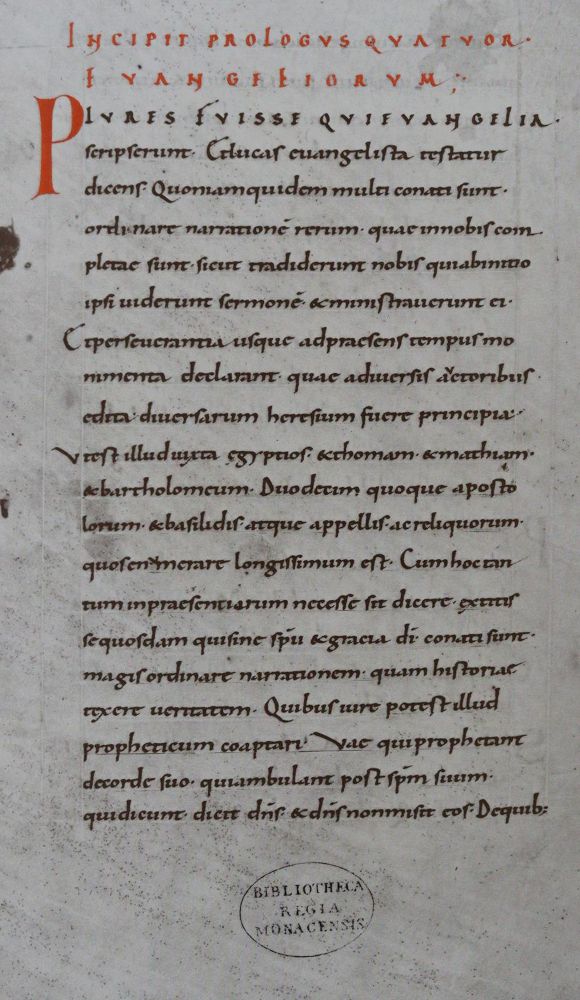 INCIPIT PROLOGVS QVATVOR·
EVANGELIORVM;
PLVRES FVISSE QVI EVANGELIA·
scripserunt· Et lucas euangelista testatur
dicens· Quoniam quidem multi conati sunt·
ordinare narrationē rerum· quae in nobis com
pletae sunt· sicut tradiderunt nobis qui ab initio
ipsi uiderunt sermonē· & ministrauerunt ei·
Et perseuerantia usque ad praesens tempus mo
nimenta declarant· quae a diuersis auctoribus·
edita· diuersarum heresium fuere principia·
Vt est illud iuxta egyptios· & thomam· & mathiam·
& bartholomeum· Duodecim quoque aposto
lorum· & basilidis atque appellis· ac reliquorum·
quos enumerare longissimum est· Cum hoc tan
tum in praesentiarum necesse sit dicere· extitis
se quosdam qui sine spū & gracia dī· conati sunt·
magis ordinare narrationem· quam historiae
texere ueritatem· Quibus iure potest illud
propheticum coaptari· Vae qui prophetant
de corde suo· qui ambulant post spm̄ suum·
qui dicunt· dicit dn̄s· & dn̄s non misit eos· De quib;
BIBLIOTHECA
REGIA
MONACENSIS